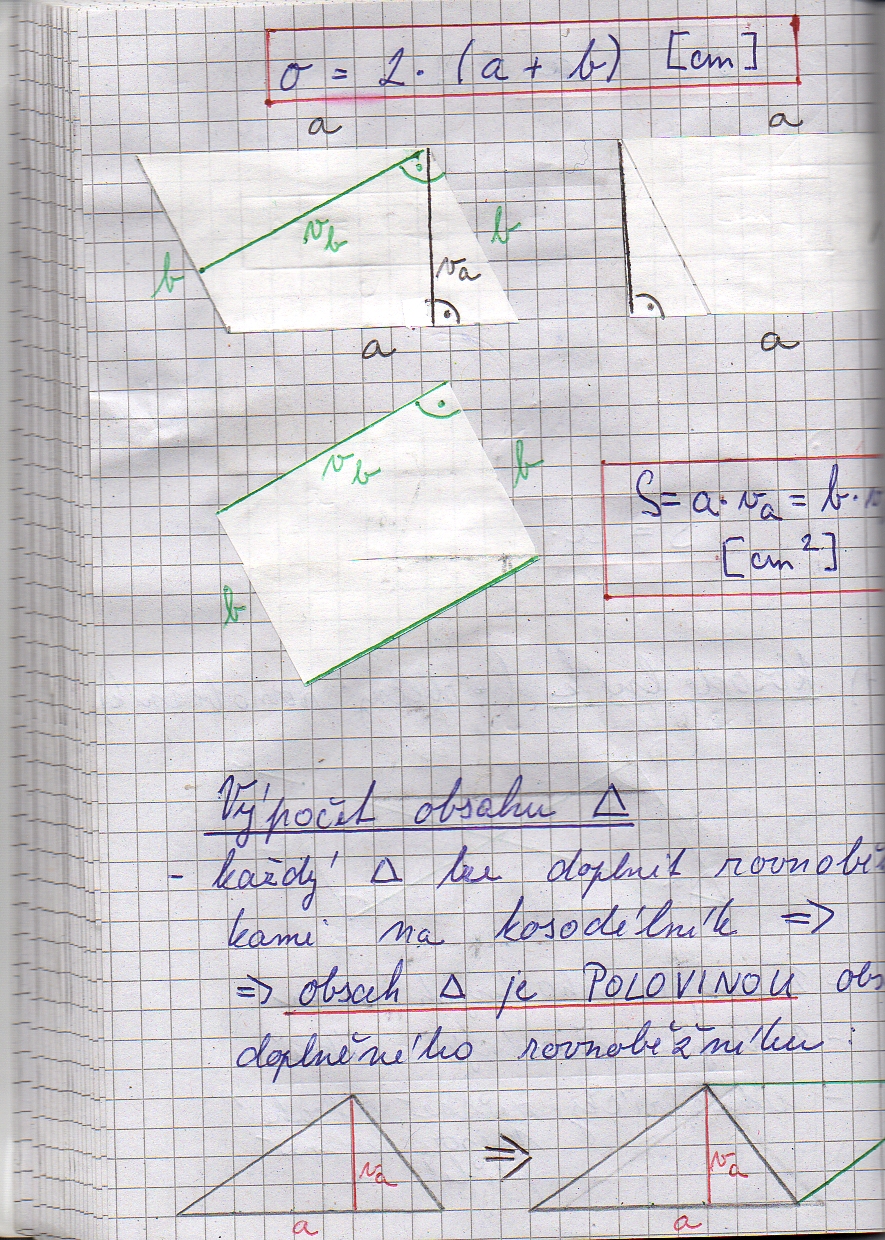 o = 2 · (a + b) [cm]
a a
v_b b
b v_a
a a
v_b b
S = a · v_a = b ·
[cm²]
b
Výpočet obsahu Δ
- každý Δ lze doplnit rovnoběž
kami na kosodélník =>
=> obsah Δ je POLOVINOU obs
doplněného rovnoběžníku :
v_a => v_a
a a